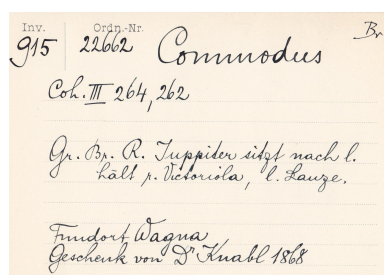 Inv. Ordn.-Nr. Br
915 22662 Commodus
Coh. III 264, 262
Gr. Br. R. Juppiter sitzt nach l.
hält r. Victoriola, l. Lanze.
Fundort Wagna
Geschenk von Dr Knabl 1868